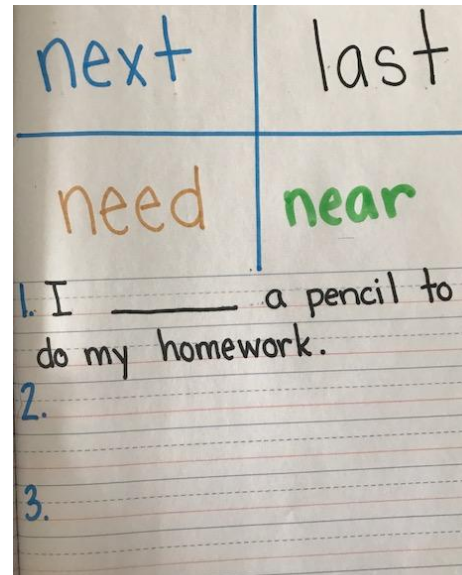 next last
need near
1. I ______ a pencil to
do my homework.
2.
3.